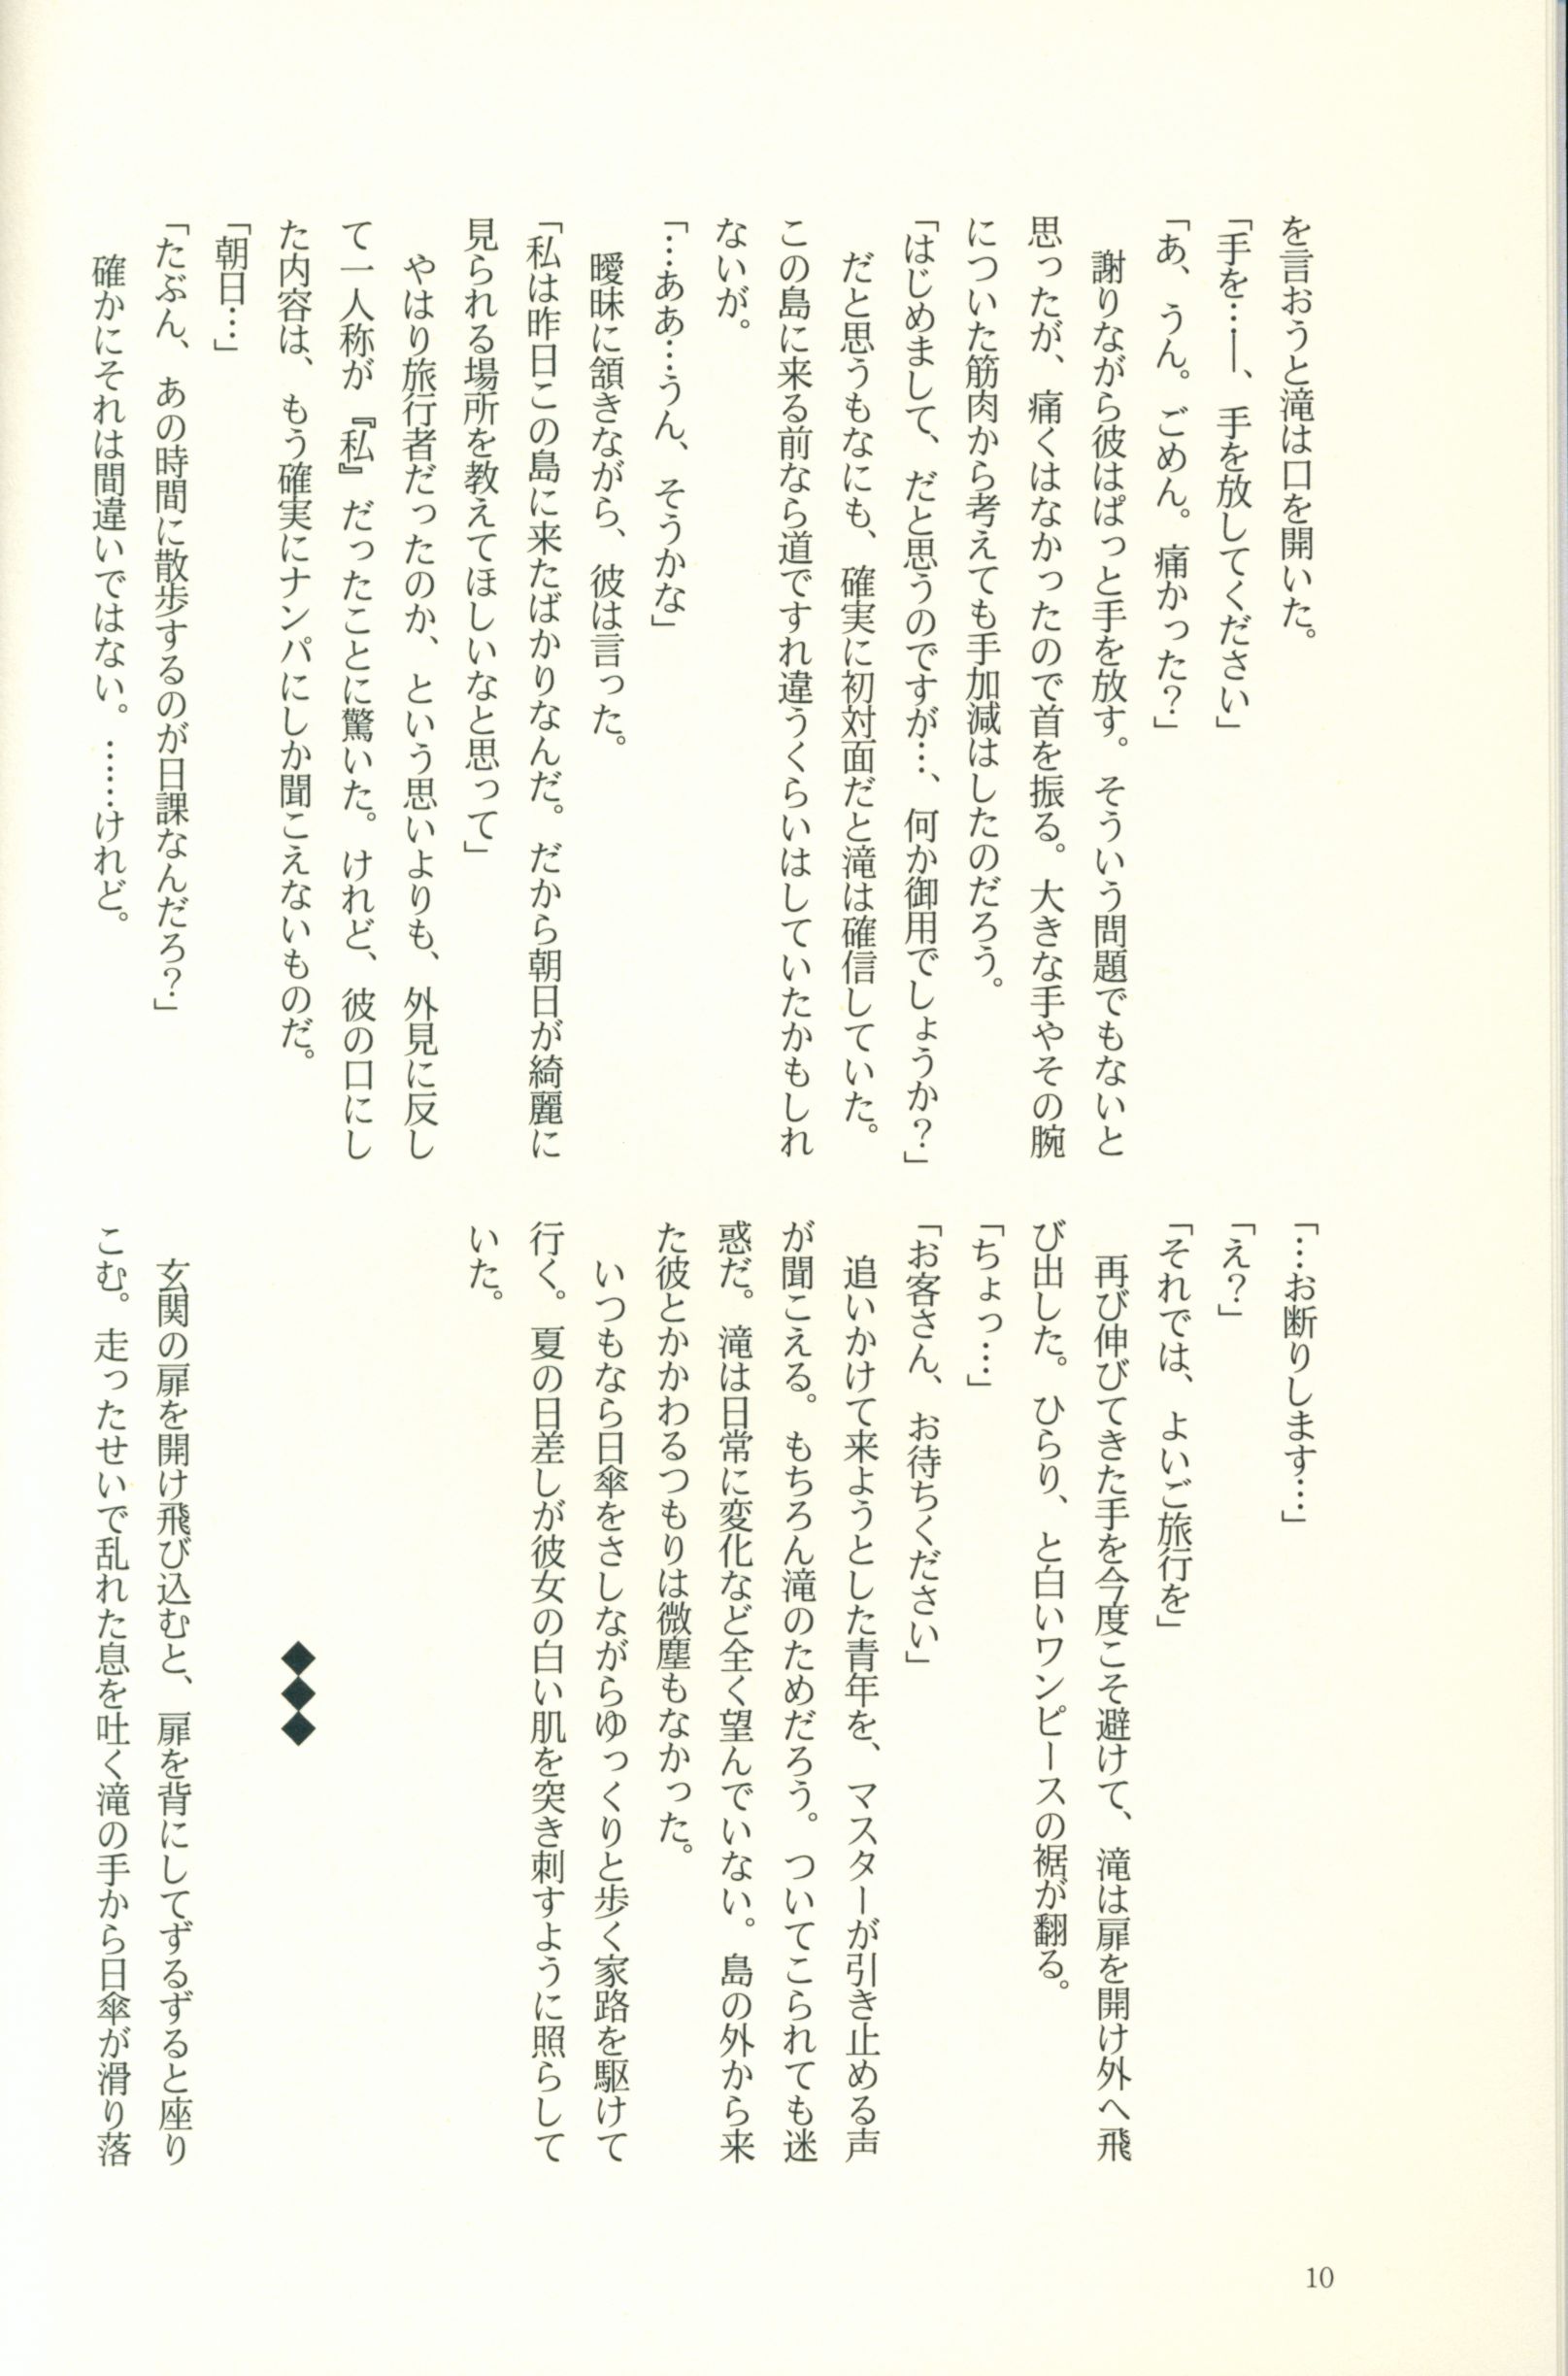 を言おうと滝は口を開いた。
「手を…――、手を放してください」
「あ、うん。ごめん。痛かった？」
　謝りながら彼はぱっと手を放す。そういう問題でもないと
思ったが、痛くはなかったので首を振る。大きな手やその腕
についた筋肉から考えても手加減はしたのだろう。
「はじめまして、だと思うのですが…、何か御用でしょうか？」
　だと思うもなにも、確実に初対面だと滝は確信していた。
この島に来る前なら道ですれ違うくらいはしていたかもしれ
ないが。
「…ああ…うん、そうかな」
　曖昧に頷きながら、彼は言った。
「私は昨日この島に来たばかりなんだ。だから朝日が綺麗に
見られる場所を教えてほしいなと思って」
　やはり旅行者だったのか、という思いよりも、外見に反し
て一人称が『私』だったことに驚いた。けれど、彼の口にし
た内容は、もう確実にナンパにしか聞こえないものだ。
「朝日…」
「たぶん、あの時間に散歩するのが日課なんだろ？」
　確かにそれは間違いではない。……けれど。
「…お断りします…」
「え？」
「それでは、よいご旅行を」
　再び伸びてきた手を今度こそ避けて、滝は扉を開け外へ飛
び出した。ひらり、と白いワンピースの裾が翻る。
「ちょっ…」
「お客さん、お待ちください」
　追いかけて来ようとした青年を、マスターが引き止める声
が聞こえる。もちろん滝のためだろう。ついてこられても迷
惑だ。滝は日常に変化など全く望んでいない。島の外から来
た彼とかかわるつもりは微塵もなかった。
　いつもなら日傘をさしながらゆっくりと歩く家路を駆けて
行く。夏の日差しが彼女の白い肌を突き刺すように照らして
いた。
◆◆◆
　玄関の扉を開け飛び込むと、扉を背にしてずるずると座り
こむ。走ったせいで乱れた息を吐く滝の手から日傘が滑り落
10